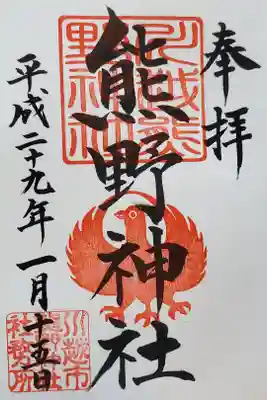 奉拝
川越熊
野神社
熊野神社
平成二十九年一月十五日
川越市
熊野神社
社務所